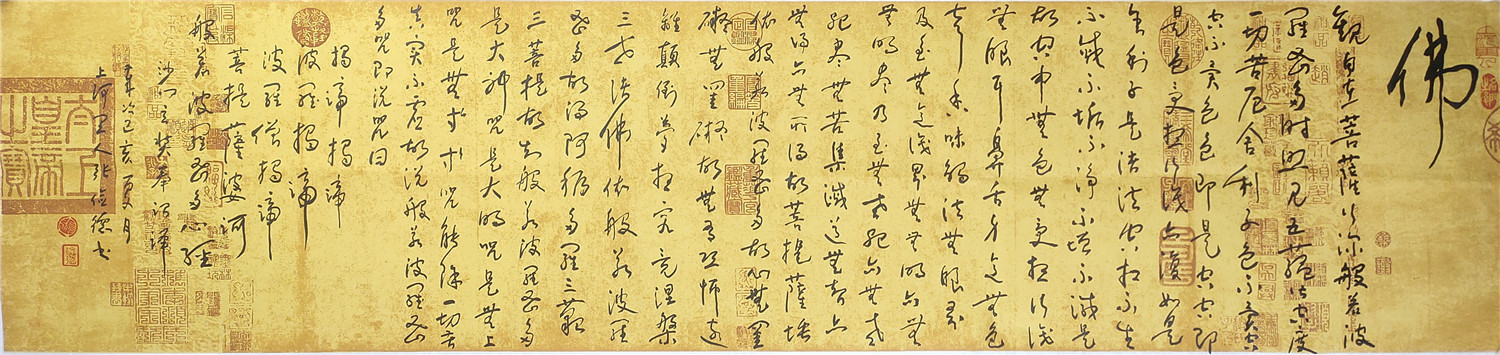 佛
觀自在菩薩行深般若波
羅蜜多時照見五蘊皆空度
一切苦厄舍利子色不異空
空不異色色即是空空即
是色受想行識亦復如是
舍利子是諸法空相不生
不滅不垢不淨不增不減是
故空中無色無受想行識
無眼耳鼻舌身意無色
聲香味觸法無眼界
乃至無意識界無無明亦無
無明盡乃至無老死亦無老
死盡無苦集滅道無智亦
無得以無所得故菩提薩埵
依般若波羅蜜多故心無罣
礙無罣礙故無有恐怖遠
離顛倒夢想究竟涅槃
三世諸佛依般若波羅
蜜多故得阿耨多羅三藐
三菩提故知般若波羅蜜多
是大神咒是大明咒是無上
咒是無等等咒能除一切苦
真實不虛故說般若波羅蜜
多咒即說咒曰
揭諦揭諦
波羅揭諦
波羅僧揭諦
菩提薩婆訶
般若波羅蜜多心經
沙門玄奘奉詔譯
歲次己亥夏月
上河 人張 德書
太上皇帝之寶